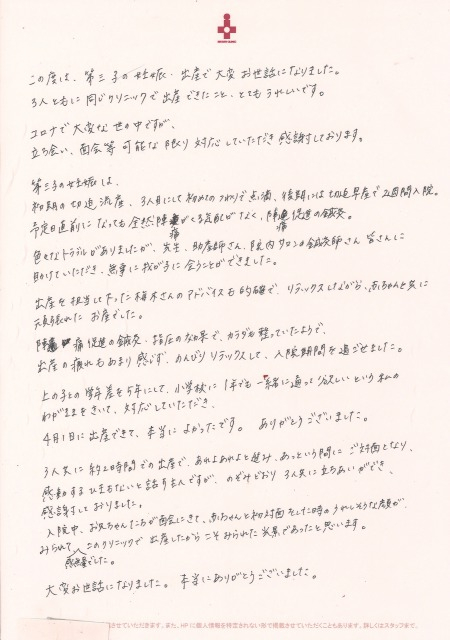 この度は、第三子の妊娠・出産で大変お世話になりました。
3人ともに同じクリニックで出産できたこと、とてもうれしいです。
コロナで大変な世の中ですが、
立ち会い、面会等可能な限り対応していただき感謝しております。
第三子の妊娠は、
初期の切迫流産、3人目にして初めてのつわりで点滴、後期には切迫早産で2週間入院。
予定日直前になっても全然陣痛がくる気配がなく、陣痛促進の鍼灸。
色々なトラブルがありましたが、先生、助産師さん、院内サロンの鍼灸師さん皆さんに
助けていただき、無事に我が子に会うことができました。
出産を担当して下った梅木さんのアドバイスも的確で、リラックスしながら、赤ちゃんと共に
頑張れたお産でした。
陣痛促進の鍼灸・指圧の効果で、カラダも整っていたようで、
出産の疲れもあまり感じず、のんびりリラックスして、入院期間を過ごせました。
上の子との学年差を5年にして、小学校に1年でも一緒に通って欲しいという私の
わがままをきいて、対応していただき、
4月1日に出産できて、本当によかったです。ありがとうございました。
3人共に約2時間での出産で、あれよあれよと進み、あっという間にご対面となり、
感動するひまもないと話す主人ですが、のぞみどおり3人共に立ちあいができ、
感謝しておりました。
入院中、お兄ちゃんたちが面会にきて、赤ちゃんと初対面をした時のうれしそうな顔が、
みられて、このクリニックで出産したからこそみられた光景であったと思います。
感無量でした。
大変お世話になりました。本当にありがとうございました。
させていただきます。また、HPに個人情報を特定されない形で掲載させていただくこともあります。詳しくはスタッフまで。